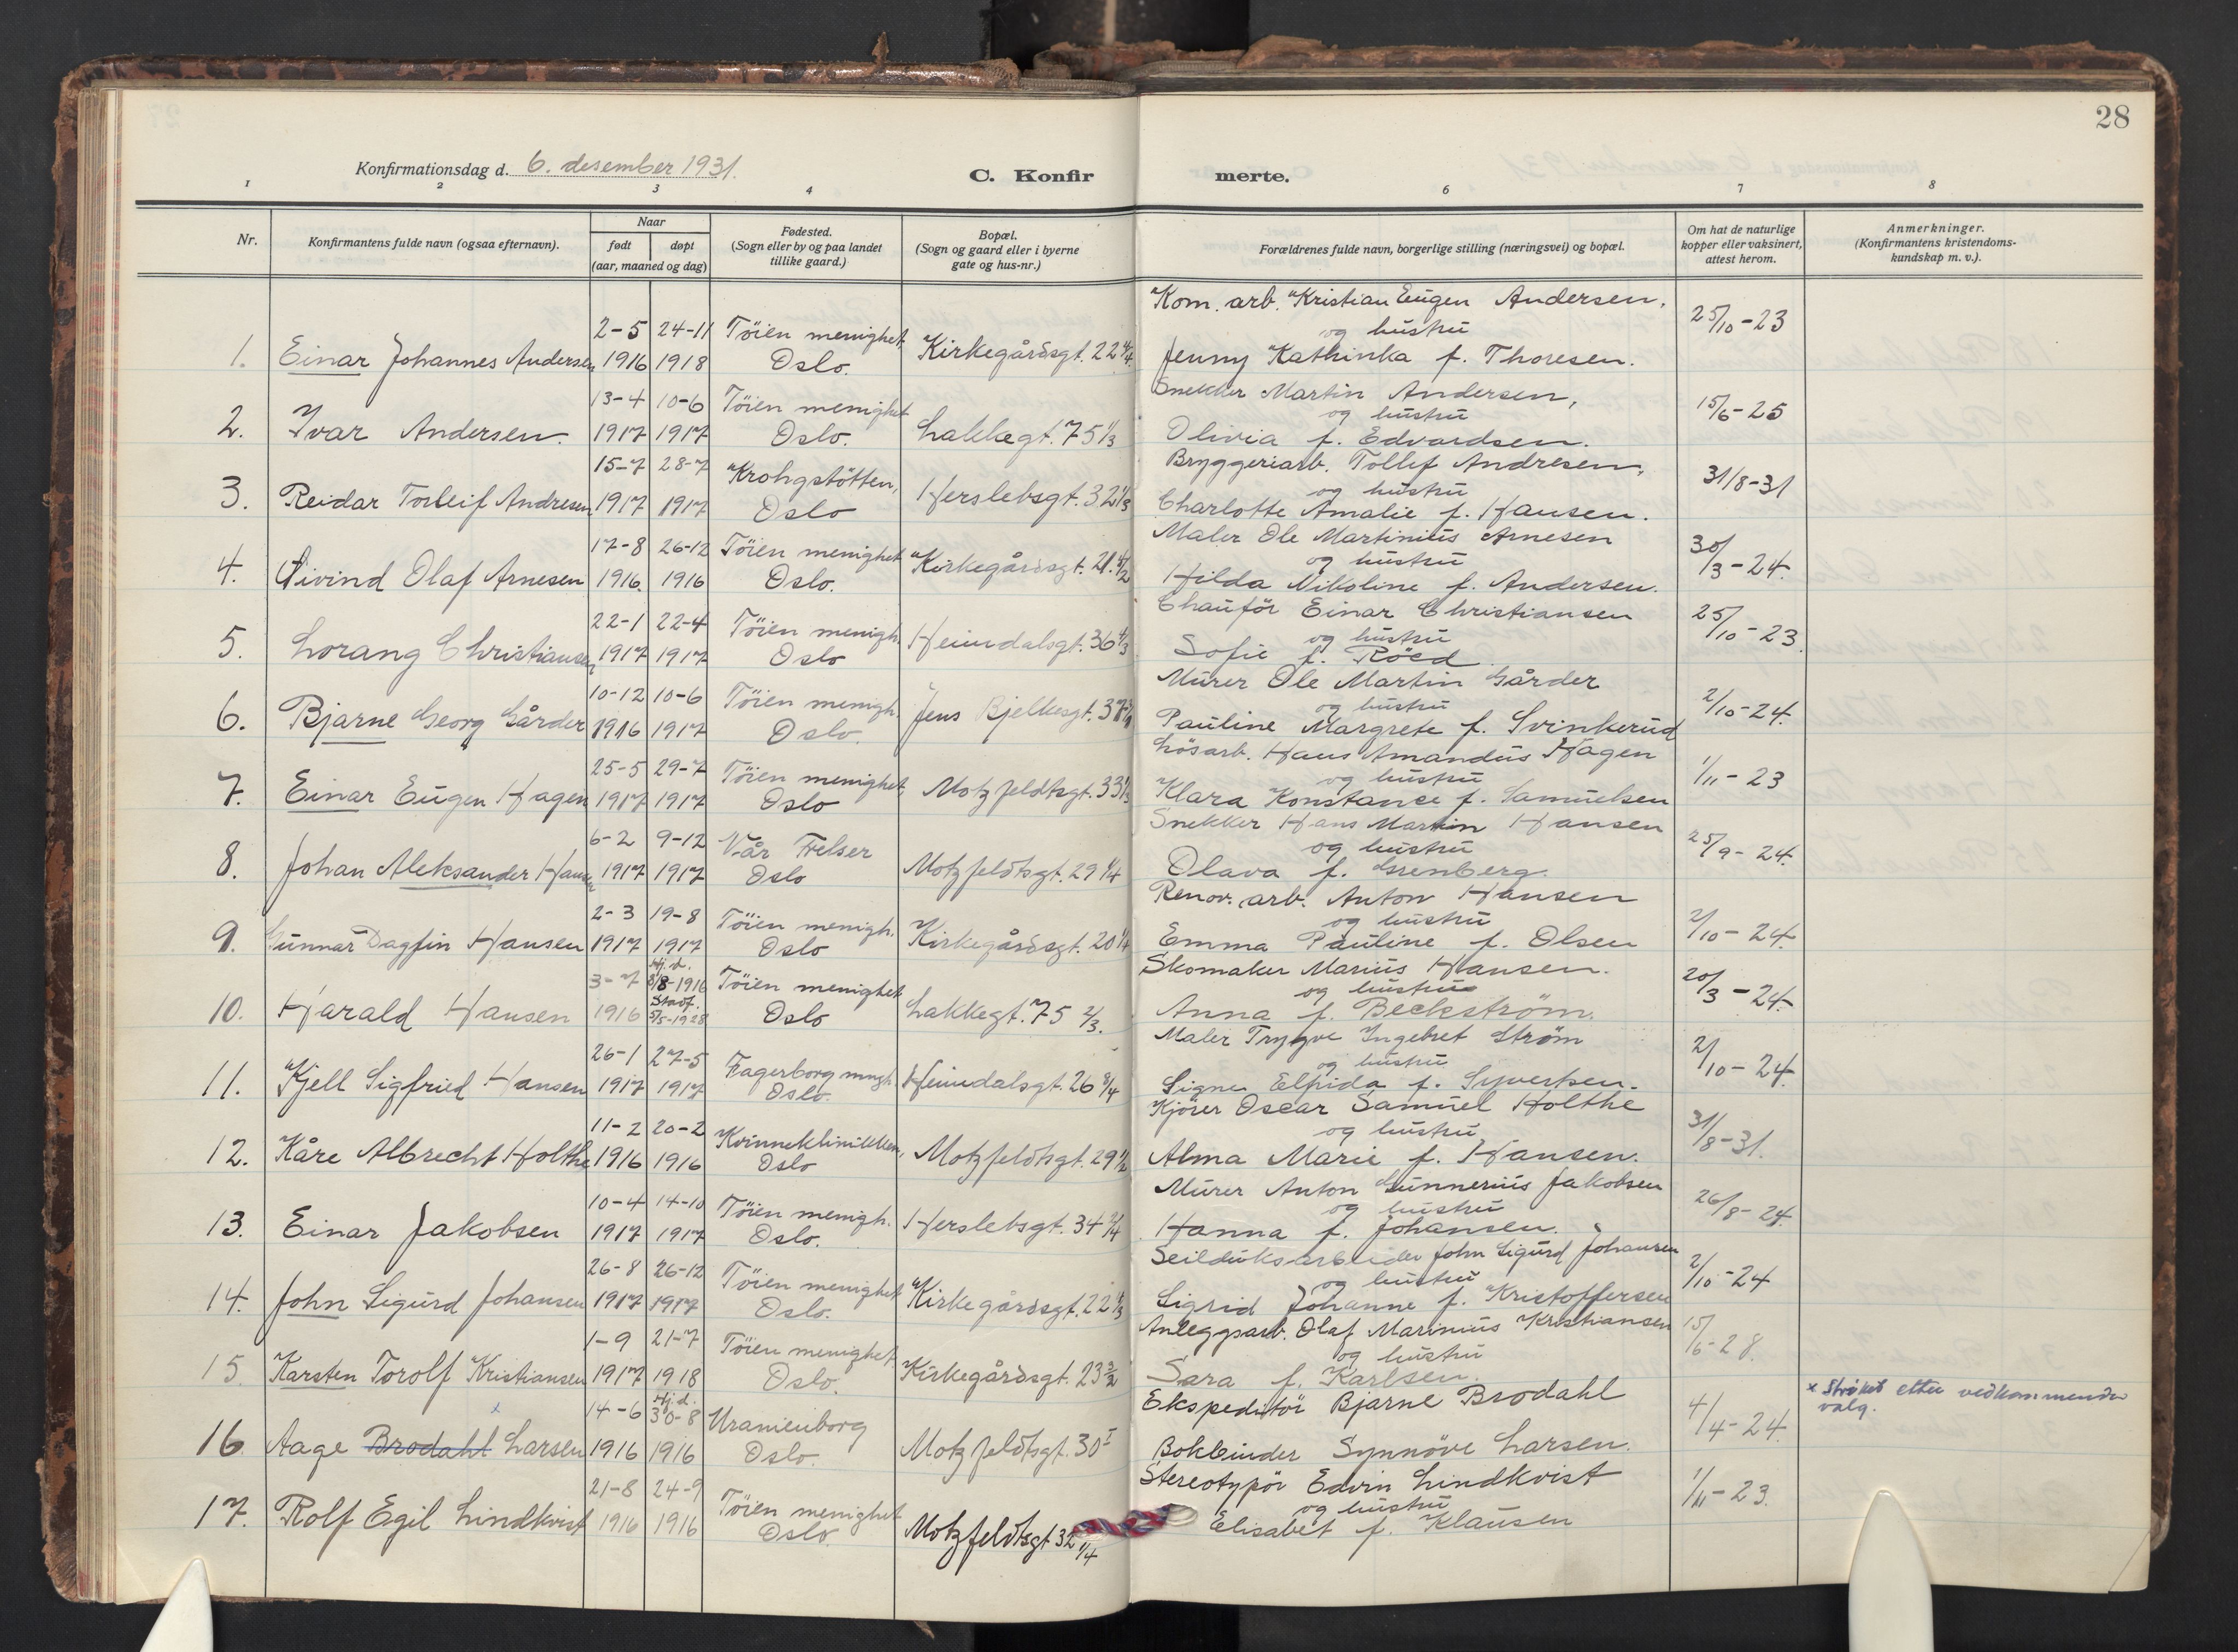 28
Konfirmationsdag d. 6. desember 1931.
C. Konfir merte.
1 2 3 4 6 7 8
Nr.
Konfirmantens fulde navn (ogsaa efternavn).
Naar
født døpt
(aar, maaned og dag)
Fødested.
(Sogn eller by og paa landet
tillike gaard.)
Bopæl.
(Sogn og gaard eller i byerne
gate og hus-nr.)
Forældrenes fulde navn, borgerlige stilling (næringsvei) og bopæl.
Om hat de naturlige
kopper eller vaksinert,
attest herom.
Anmerkninger.
(Konfirmantens kristendoms-
kundskap m. v.).
Kom. arb. Kristian Eugen Andersen,
2-5 24-11 Töien menighet, og hustru 25/10-23
1. Einar Johannes Andersen 1916 1918 Oslo. Kirkegårdsgt. 22 Jenny Kathinka f. Thoresen.
13-4 10-6 Töien menighet Snekker Martin Andersen,
og hustru 15/6-25
2. Ivar Andersen. 1917 1917 Oslo. Lakkegt. 75 1/3 Olivia f. Edvardsen.
15-7 28-7 Krohgstötten, Bryggeriarb. Tollef Andresen,
og hustru 31/8-31
3. Reidar Torleif Andresen 1917 1917 Oslo Herslebsgt. 32 1/3 Charlotte Amalie f. Hansen.
17-8 26-12 Töien menighet Maler Ole Martinius Arnesen
og hustru 30/3-24.
4. Öivind Olaf Arnesen 1916. 1916 Oslo. Kirkegårdsgt. 21. Hilda Nikoline f. Andersen.
22-1 22-4 Töien menigh. Chauför Einar Christiansen
og hustru 25/10-23
5. Lorang Christiansen 1917 1917 Oslo Heimdalsgt. 36 4/3 Sofie f. Röed
10-12 10-6 Töien menigh. Murer Ole Martin Gårder
og hustru 2/10-24.
6. Bjarne Georg Gårder 1916 1917 Oslo. Jens Bjelkesgt. 37 Pauline Margrete f. Svinkerud
25-5 29-7 Töien menighet, Lösarb. Hans Amandus Hagen
og hustru 1/11-23
7. Einar Eugen Hagen 1917 1917 Oslo Motzfeldtsgt. 33 1/3 Klara Konstance f. Samuelsen
6-2 9-12 Vår Frelser Snekker Hans Martin Hansen
og hustru 25/9-24.
8. Johan Aleksander Hansen 1917 1917 Oslo Motzfeldtsgt. 29 1/4 Olava f. Grenberg.
2-3 19-8 Töien menigh. Renov. arb. Anton Hansen
og hustru 2/10-24.
9. Gunnar Dagfin Hansen 1917 1917 Oslo Kirkegårdsgt. 20 1/4 Emma Pauline f. Olsen
3-7 Hj. d. 8/8-1916 Töien menighet Skomaker Marius Hansen.
Stadf. og hustru 20/3-24.
10. Harald Hansen 1916 5/5-1928 Oslo Lakkegt. 75 2/3. Anna f. Beckström.
26-1 27-5 Fagerborg mngh. Maler Trygve Ingebret Ström
og hustru 2/10-24
11. Kjell Sigfried Hansen 1917 1917 Oslo. Heimdalsgt. 26 Signe Elfrida f. Syvertsen.
11-2 20-2 Kvinneklinikken, Kjörer Oscar Samuel Holthe
og hustru 31/8-31.
12. Kåre Albrecht Holthe 1916 1916 Oslo Motzfeldtsgt. 29 1/2 Alma Marie f. Hansen.
10-4 14-10 Töien menigh. Murer Anton Gunnerius Jakobsen
og hustru 26/8-24.
13. Einar Jakobsen 1917 1917 Oslo. Herslebsgt. 34 Hanna f. Johansen.
26-8 26-12 Töien menighet Seilduksarbeider John Sigurd Johansen
og hustru 2/10-24
14. John Sigurd Johansen 1917 1917 Oslo. Kirkegårdsgt. 22 Sigrid Johanne f. Kristoffersen
1-9 21-7 Töien menighet Anleggsarb. Olaf Marinius Kristiansen
og hustru 15/6-28.
15. Karsten Torolf Kristiansen 1917 1918 Oslo. Kirkegårdsgt. 23 3/2 Sara f. Karlsen.
14-6 Hj. d. 30-8 Uranienborg Ekspeditör Bjarne Brodahl 4/4-24. x Ströket etter vedkommendes
valg.
x
16. Aage Brodahl Larsen 1916 1916 Oslo. Motzfeldtsgt. 30 I Bokbinder Synnöve Larsen.
21-8 24-9 Töien menighet Stereotypör Edvin Lindkvist
og hustru 1/11-23.
17. Rolf Egil Lindkvist 1916 1916 Oslo. Motzfeldtsgt 32 1/4 Elisabet f. Klausen